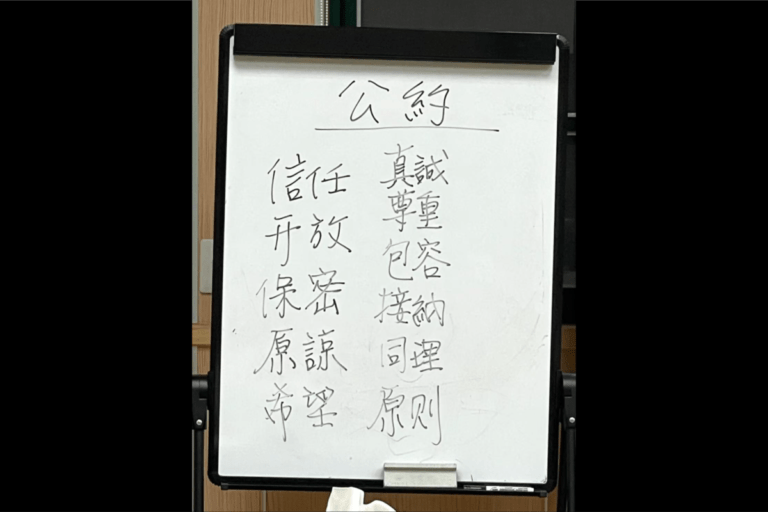 公約
信任
开放
保密
原諒
希望
真誠
尊重
包容
接納
同理
原则